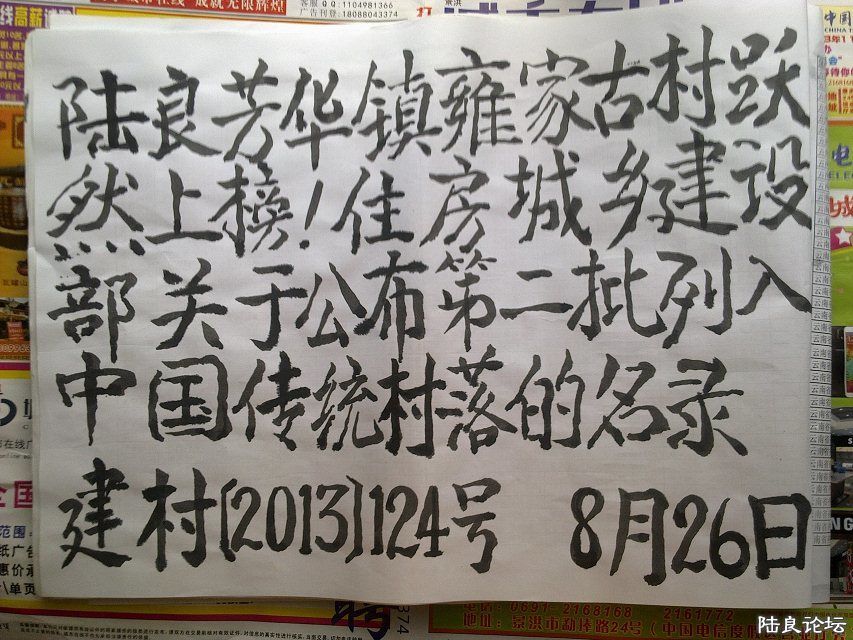 成就无限辉煌
客服QQ:1104981366
广告刊登:18088043374
陆良芳华镇雍家古村跃
然上榜!住房城乡建设
部关于公布第二批列入
中国传统村落的名录
建村[2013]124号 8月26日
电话:0691-2168168 2161772
地址:景洪市勐棒路24号
陆良论坛